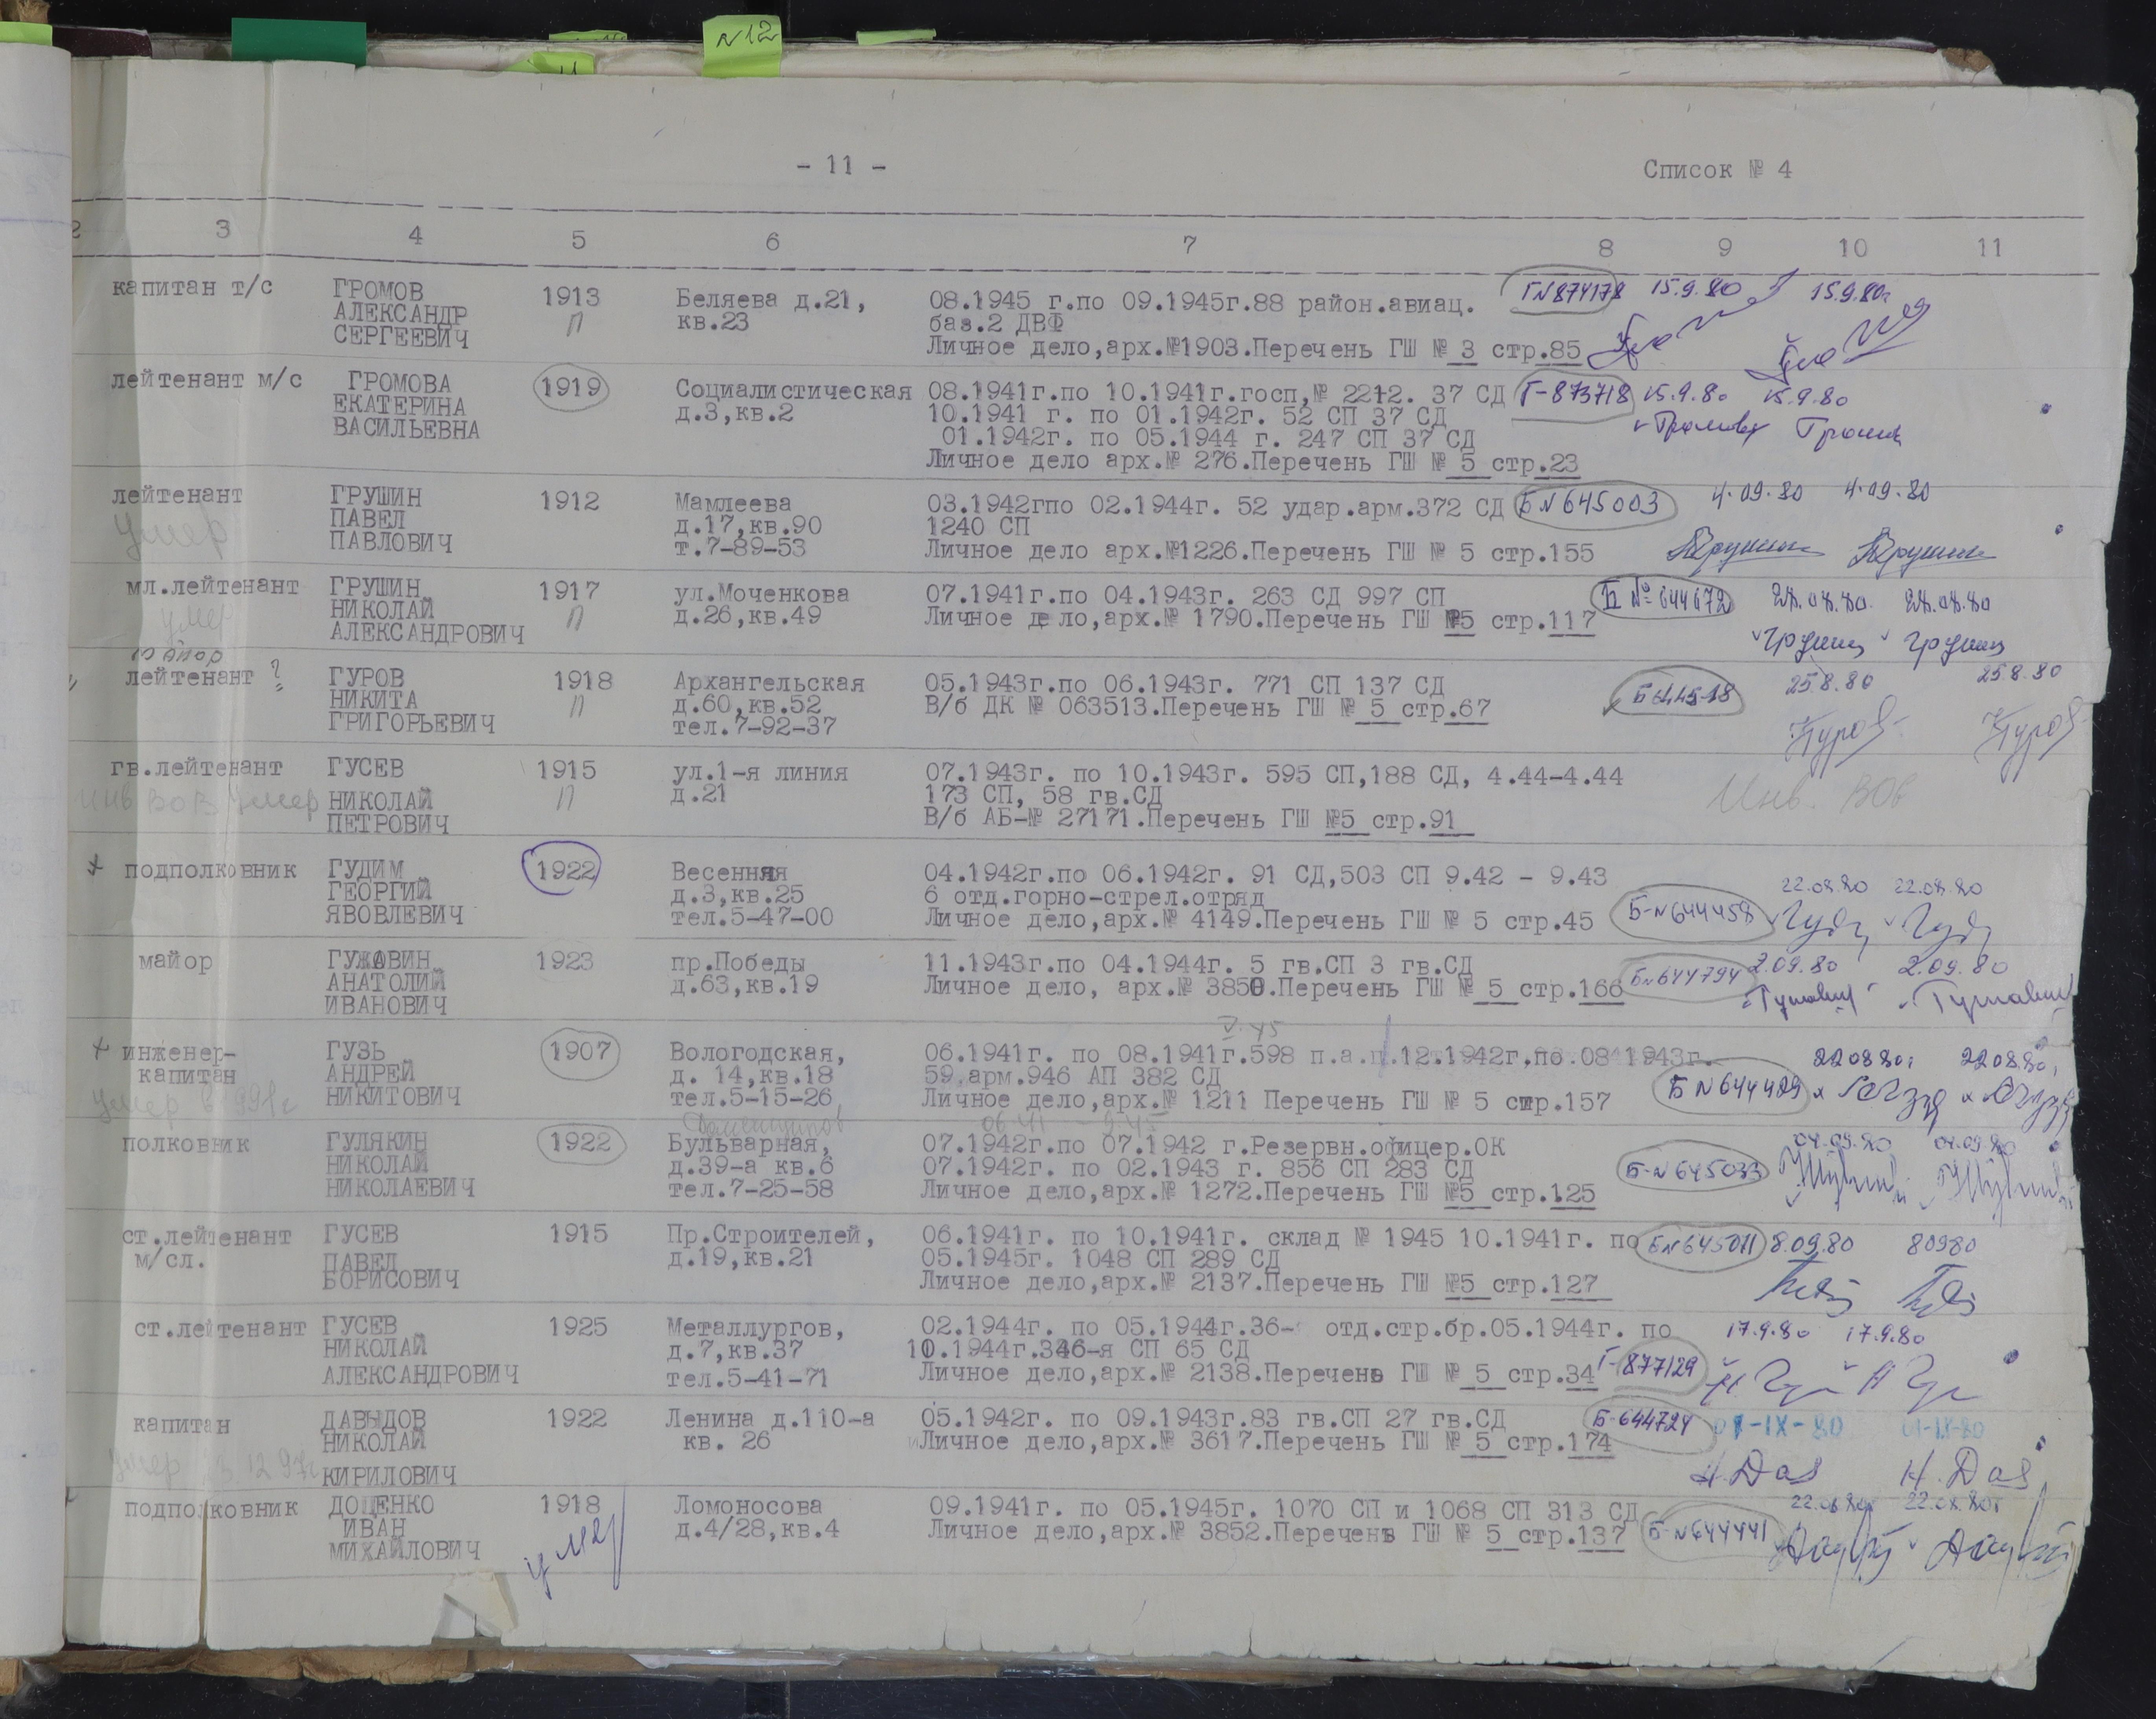 N12
- 11 -
Список № 4
2 3 4 5 6 7 8 9 10 11
капитан т/с ГРОМОВ 1913 Беляева д.21, 08.1945 г.по 09.1945г.88 район.авиац. ГN874178 15.9.80 15.9.80г
АЛЕКСАНДР П кв.23 баз.2 ДВФ
СЕРГЕЕВИЧ Личное дело,арх.№1903.Перечень ГШ № 3 стр.85
лейтенант м/с ГРОМОВА 1919 Социалистическая 08.1941г.по 10.1941г.госп,№ 2212. 37 СД Г-873718 15.9.80 15.9.80
ЕКАТЕРИНА д.3,кв.2 10.1941 г. по 01.1942г. 52 СП 37 СД
ВАСИЛЬЕВНА 01.1942г. по 05.1944 г. 247 СП 37 СД
Личное дело арх.№ 276.Перечень ГШ № 5 стр.23
лейтенант ГРУШИН 1912 Мамлеева 03.1942гпо 02.1944г. 52 удар.арм.372 СД БN645003 4.09.80 4.09.80
умер ПАВЕЛ д.17,кв.90 1240 СП
ПАВЛОВИЧ т.7-89-53 Личное дело арх.№1226.Перечень ГШ № 5 стр.155 Грушин Грушин
мл.лейтенант ГРУШИН 1917 ул.Моченкова 07.1941г.по 04.1943г. 263 СД 997 СП Б №644672 28.08.80. 28.08.80
умер НИКОЛАЙ П д.26,кв.49 Личное дело,арх.№ 1790.Перечень ГШ №5 стр.117
АЛЕКСАНДРОВИЧ
майор
лейтенант ? ГУРОВ 1918 Архангельская 05.1943г.по 06.1943г. 771 СП 137 СД 25.8.80 25.8.80
НИКИТА П д.60,кв.52 В/б ДК № 063513.Перечень ГШ № 5 стр.67
ГРИГОРЬЕВИЧ тел.7-92-37 Гуров Гуров
гв.лейтенант ГУСЕВ 1915 ул.1-я линия 07.1943г. по 10.1943г. 595 СП,188 СД, 4.44-4.44
инв ВОВ умер НИКОЛАЙ П д.21 173 СП, 58 гв.СД Инв. ВОв
ПЕТРОВИЧ В/б АБ-№ 27171.Перечень ГШ №5 стр.91
подполковник ГУДИМ 1922 Весенняя 04.1942г.по 06.1942г. 91 СД,503 СП 9.42 - 9.43 22.08.80 22.08.80
ГЕОРГИЙ д.3,кв.25 6 отд.горно-стрел.отряд
ЯКОВЛЕВИЧ тел.5-47-00 Личное дело,арх.№ 4149.Перечень ГШ № 5 стр.45 Б-N644458
майор ГУЖАВИН 1923 пр.Победы 11.1943г.по 04.1944г. 5 гв.СП 3 гв.СД 2.09.80 2.09.80
АНАТОЛИЙ д.63,кв.19 Личное дело, арх.№ 3850.Перечень ГШ № 5 стр.166 БN644794
ИВАНОВИЧ
V.45
инженер- ГУЗЬ 1907 Вологодская, 06.1941г. по 08.1941г.598 п.а.п.12.1942г.по 08 1943г. 220880г 220880г
капитан АНДРЕЙ д. 14,кв.18 59.арм.946 АП 382 СД
умер НИКИТОВИЧ тел.5-15-26 Личное дело,арх.№ 1211 Перечень ГШ № 5 стр.157 БN644489
полковник ГУЛЯКИН 1922 Бульварная, 07.1942г.по 07.1942 г.Резервн.офицер.ОК 04.09.80 04.09.80
НИКОЛАЙ д.39-а кв.6 07.1942г. по 02.1943 г. 856 СП 283 СД Б-N645033
НИКОЛАЕВИЧ тел.7-25-58 Личное дело,арх.№ 1272.Перечень ГШ №5 стр.125
ст.лейтенант ГУСЕВ 1915 Пр.Строителей, 06.1941г. по 10.1941г. склад № 1945 10.1941г. по БN645011 8.09.80 80980
м/сл. ПАВЕЛ д.19,кв.21 05.1945г. 1048 СП 289 СД
БОРИСОВИЧ Личное дело,арх.№ 2137.Перечень ГШ №5 стр.127
ст.лейтенант ГУСЕВ 1925 Металлургов, 02.1944г. по 05.1944г.36- отд.стр.бр.05.1944г. по 17.9.80 17.9.80
НИКОЛАЙ д.7,кв.37 10.1944г.346-я СП 65 СД
АЛЕКСАНДРОВИЧ тел.5-41-71 Личное дело,арх.№ 2138.Перечень ГШ № 5 стр.34 Г-877129
капитан ДАВЫДОВ 1922 Ленина д.110-а 05.1942г. по 09.1943г.83 гв.СП 27 гв.СД Б-644724 01-IX-80 01-IX-80
НИКОЛАЙ кв. 26 Личное дело,арх.№ 3617.Перечень ГШ № 5 стр.174
умер 3.12.97г КИРИЛОВИЧ Н.Дав Н.Дав
подполковник ДОЦЕНКО 1918 Ломоносова 09.1941г. по 05.1945г. 1070 СП и 1068 СП 313 СД 22.08.80г 22.08.80г
ИВАН умер д.4/28,кв.4 Личное дело,арх.№ 3852.Перечень ГШ № 5 стр.137 Б-N644441
МИХАЙЛОВИЧ